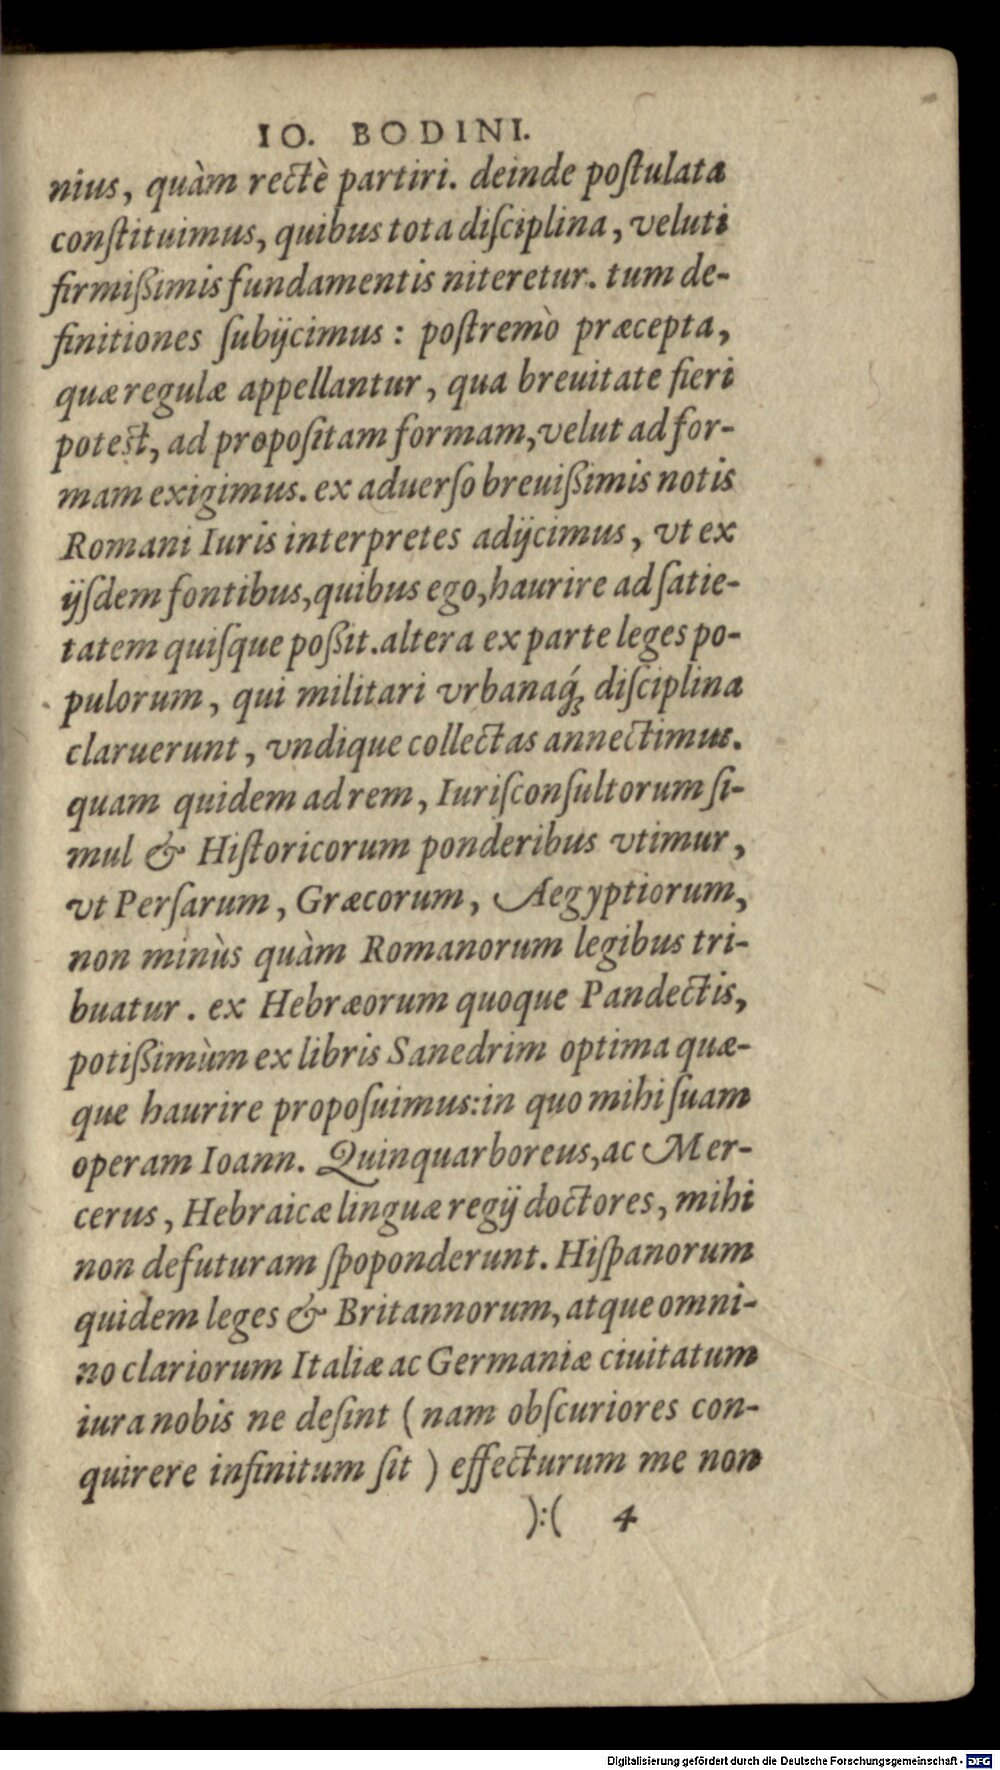 IO. BODINI.
nius, quàm rectè partiri. deinde poſtulata
conſtituimus, quibus tota diſciplina, veluti
firmißimis fundamentis niteretur. tum de-
finitiones ſubijcimus: poſtremò præcepta,
quæ regulæ appellantur, qua breuitate fieri
poteſt, ad propoſitam formam, velut ad for-
mam exigimus. ex aduerſo breuißimis notis
Romani Iuris interpretes adijcimus, vt ex
ijſdem fontibus, quibus ego, haurire ad ſatie-
tatem quiſque poßit. altera ex parte leges po-
pulorum, qui militari vrbanaq́ꝫ diſciplina
claruerunt, vndique collectas annectimus.
quam quidem ad rem, Iuriſconſultorum ſi-
mul & Hiſtoricorum ponderibus vtimur,
vt Perſarum, Græcorum, Aegyptiorum,
non minùs quàm Romanorum legibus tri-
buatur. ex Hebræorum quoque Pandectis,
potißimùm ex libris Sanedrim optima quæ-
que haurire propoſuimus: in quo mihi ſuam
operam Ioann. Quinquarboreus, ac Mer-
cerus, Hebraicæ linguæ regij doctores, mihi
non defuturam ſpoponderunt. Hiſpanorum
quidem leges & Britannorum, atque omni-
no clariorum Italiæ ac Germaniæ ciuitatum
iura nobis ne deſint (nam obſcuriores con-
quirere infinitum ſit) effecturum me non
):( 4
Digitalisierung gefördert durch die Deutsche Forschungsgemeinschaft - DFG